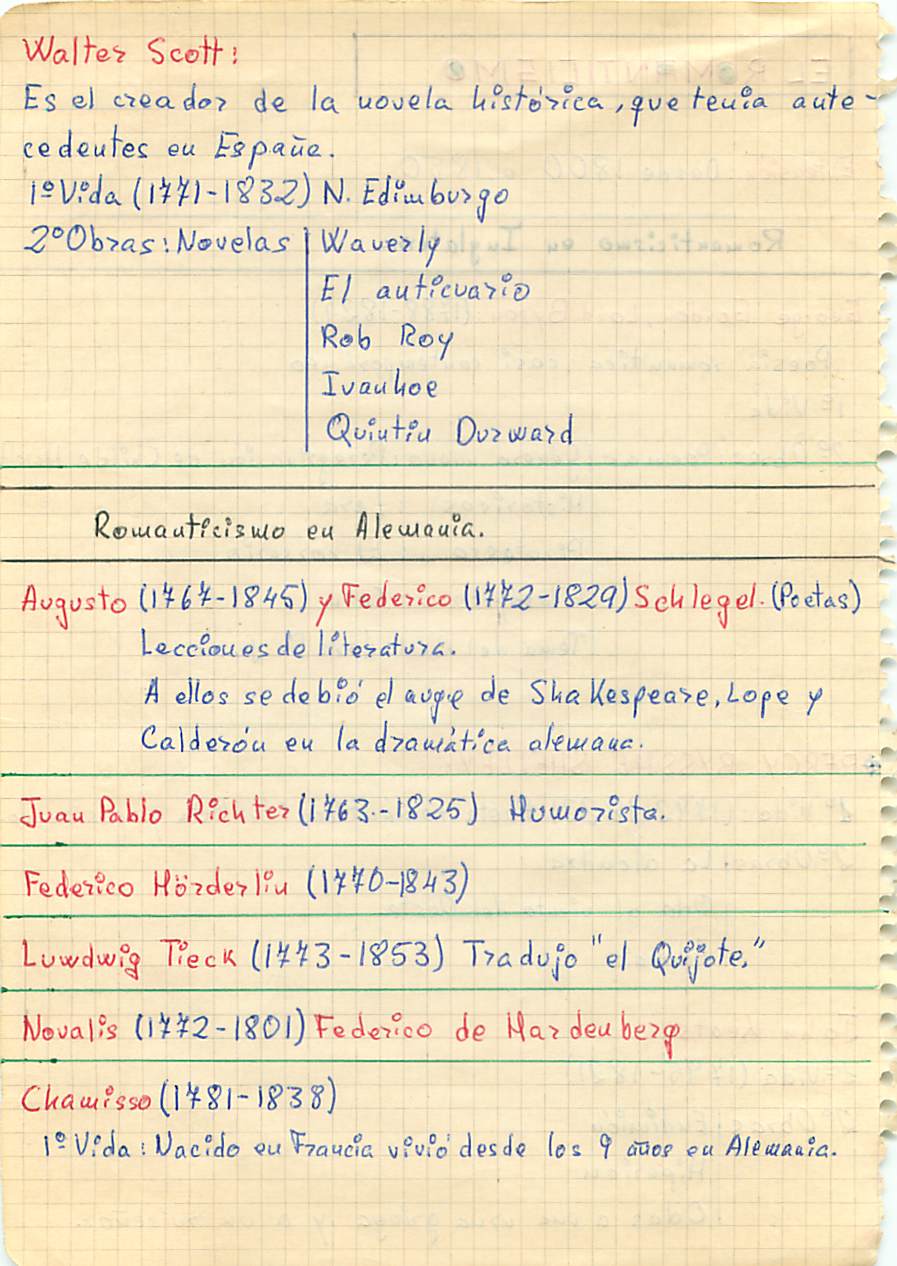 Walter Scott:
Es el creador de la novela histórica, que tenía ante-
cedentes en España.
1º Vida (1771-1832) N. Edimburgo
2º Obras: Novelas Waverly
El anticuario
Rob Roy
Ivanhoe
Quintin Durward
Romanticismo en Alemania.
Augusto (1767-1845) y Federico (1772-1829) Schlegel. (Poetas)
Lecciones de literatura.
A ellos se debió el auge de Shakespeare, Lope y
Calderón en la dramática alemana.
Juan Pablo Richter (1763.-1825) Humorista.
Federico Hörderlin (1770-1843)
Luwdwig Tieck (1773-1853) Tradujo "el Quijote."
Novalis (1772-1801) Federico de Hardenberg
Chamisso (1781-1838)
1º Vida: Nacido en Francia vivió desde los 9 años en Alemania.